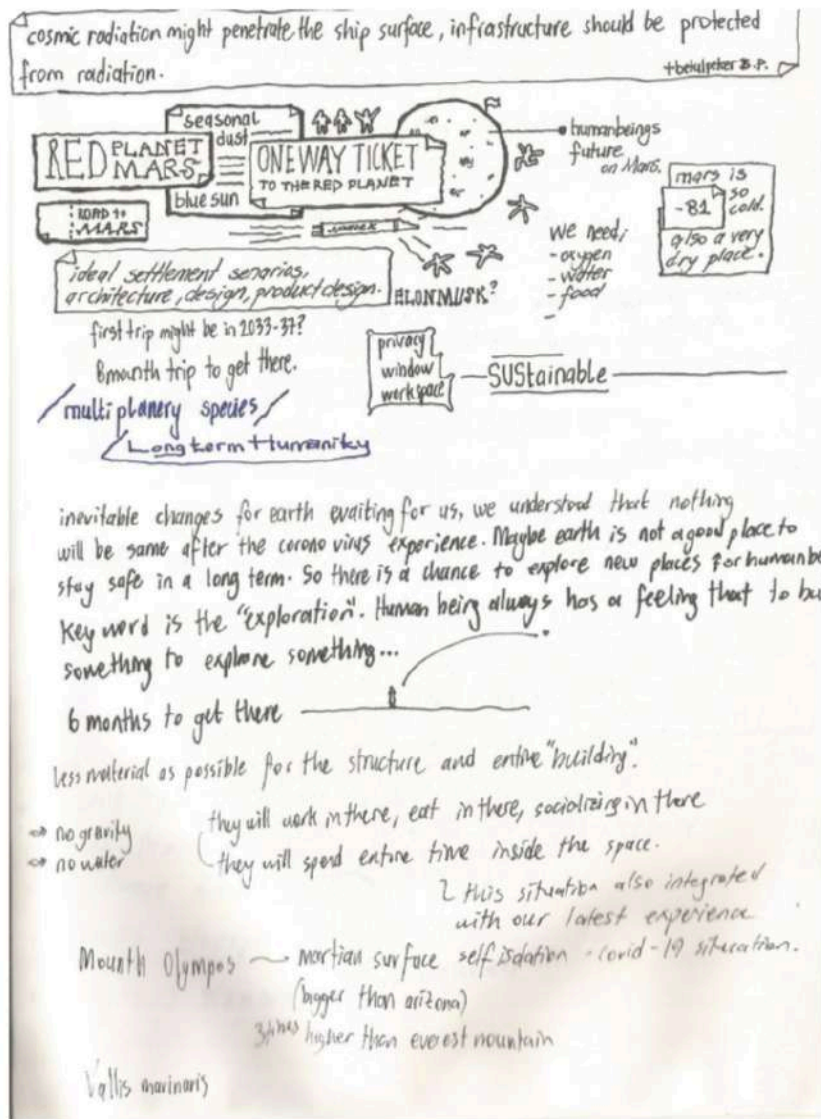 cosmic radiation might penetrate the ship surface, infrastructure should be protected
from radiation.
B.P.
seasonal
dust
RED PLANET
MARS
blue sun
ONE WAY TICKET
TO THE RED PLANET
humanbeings
future
on Mars.
mars is
so
-81 cold.
also a very
dry place.
ROAD to
MARS
we need;
- oxygen
- water
- food
-
ideal settlement senarios,
architecture, design, product design.
ELON MUSK?
first trip might be in 2033-37?
8mounth trip to get there.
privacy
window
workspace
SUStainable
multi planery species
Long term Humanity
inevitable changes for earth evaiting for us, we understood that nothing
will be same after the corono virus experience. Maybe earth is not a good place to
stay safe in a long term. So there is a chance to explore new places for human be
Key word is the "exploration". Human being always has a feeling that to bu
something to explore something...
6 months to get there
less material as possible for the structure and entire "building".
they will work in there, eat in there, socializing in there
no gravity
no water
they will spend entire time inside the space.
this situation also integrated
with our latest experience
Mounth Olympos martian surface self isolation - covid-19 situration.
(bigger than arizona)
3 times higher than everest mountain
Vallis marinaris